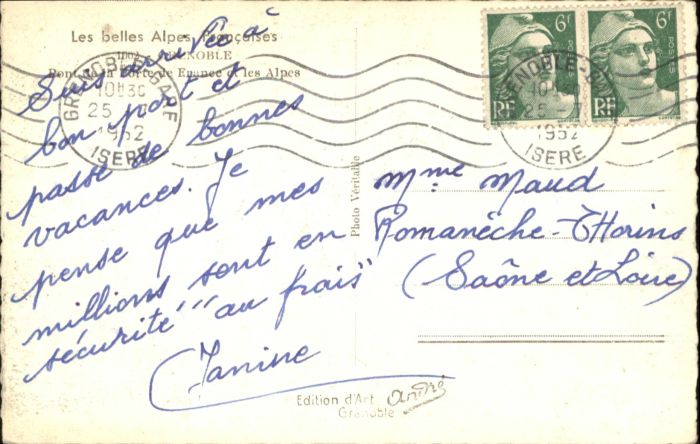 Les belles Alpes Françaises
1002 GRENOBLE
Pont de la Porte de France et les Alpes
Suis arrivée à
bon port et
passe de bonnes
vacances. Je
pense que mes
millions sont en
sécurité "au frais"
Janine
GRENOBLE-GARE
10H30
25
1952
ISERE
6F
POSTES
RF
6F
POSTES
RF
GRENOBLE-GARE
25
1952
ISERE
Photo Véritable
Mme Maud
Romanèche-THorins
(Saône et Loire)
Edition d'Art André
Grenoble